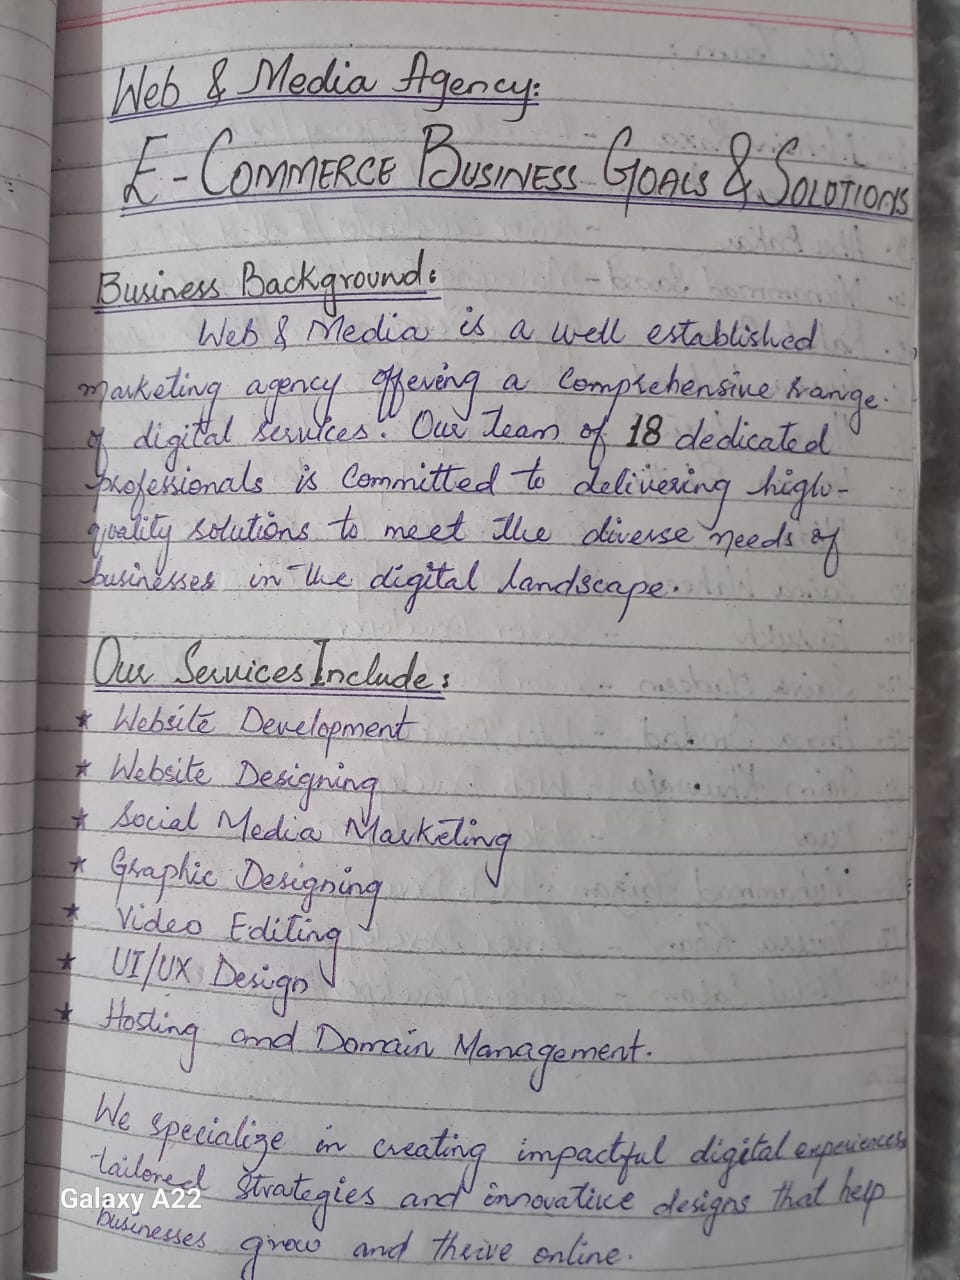 Web & Media Agency:
E-COMMERCE BUSINESS GOALS & SOLUTIONS
Business Background:
Web & Media is a well established
marketing agency offering a comprehensive range
of digital services. Our team of 18 dedicated
professionals is committed to delivering high-
quality solutions to meet the diverse needs of
businesses in the digital landscape.
Our Services Include:
* Website Development
* Website Designing
* Social Media Marketing
* Graphic Designing
* Video Editing
* UI/UX Design
* Hosting and Domain Management.
We specialize in creating impactful digital experiences
tailored strategies and innovative designs that help
businesses grow and thrive online.
Galaxy A22